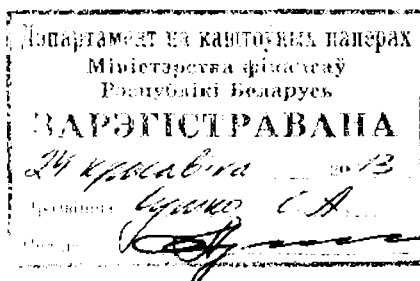 Дэпартамент па каштоўных паперах
Міністэрства фінансаў
Рэспублікі Беларусь
ЗАРЭГІСТРАВАНА
24 красавіка 2013
С.А.